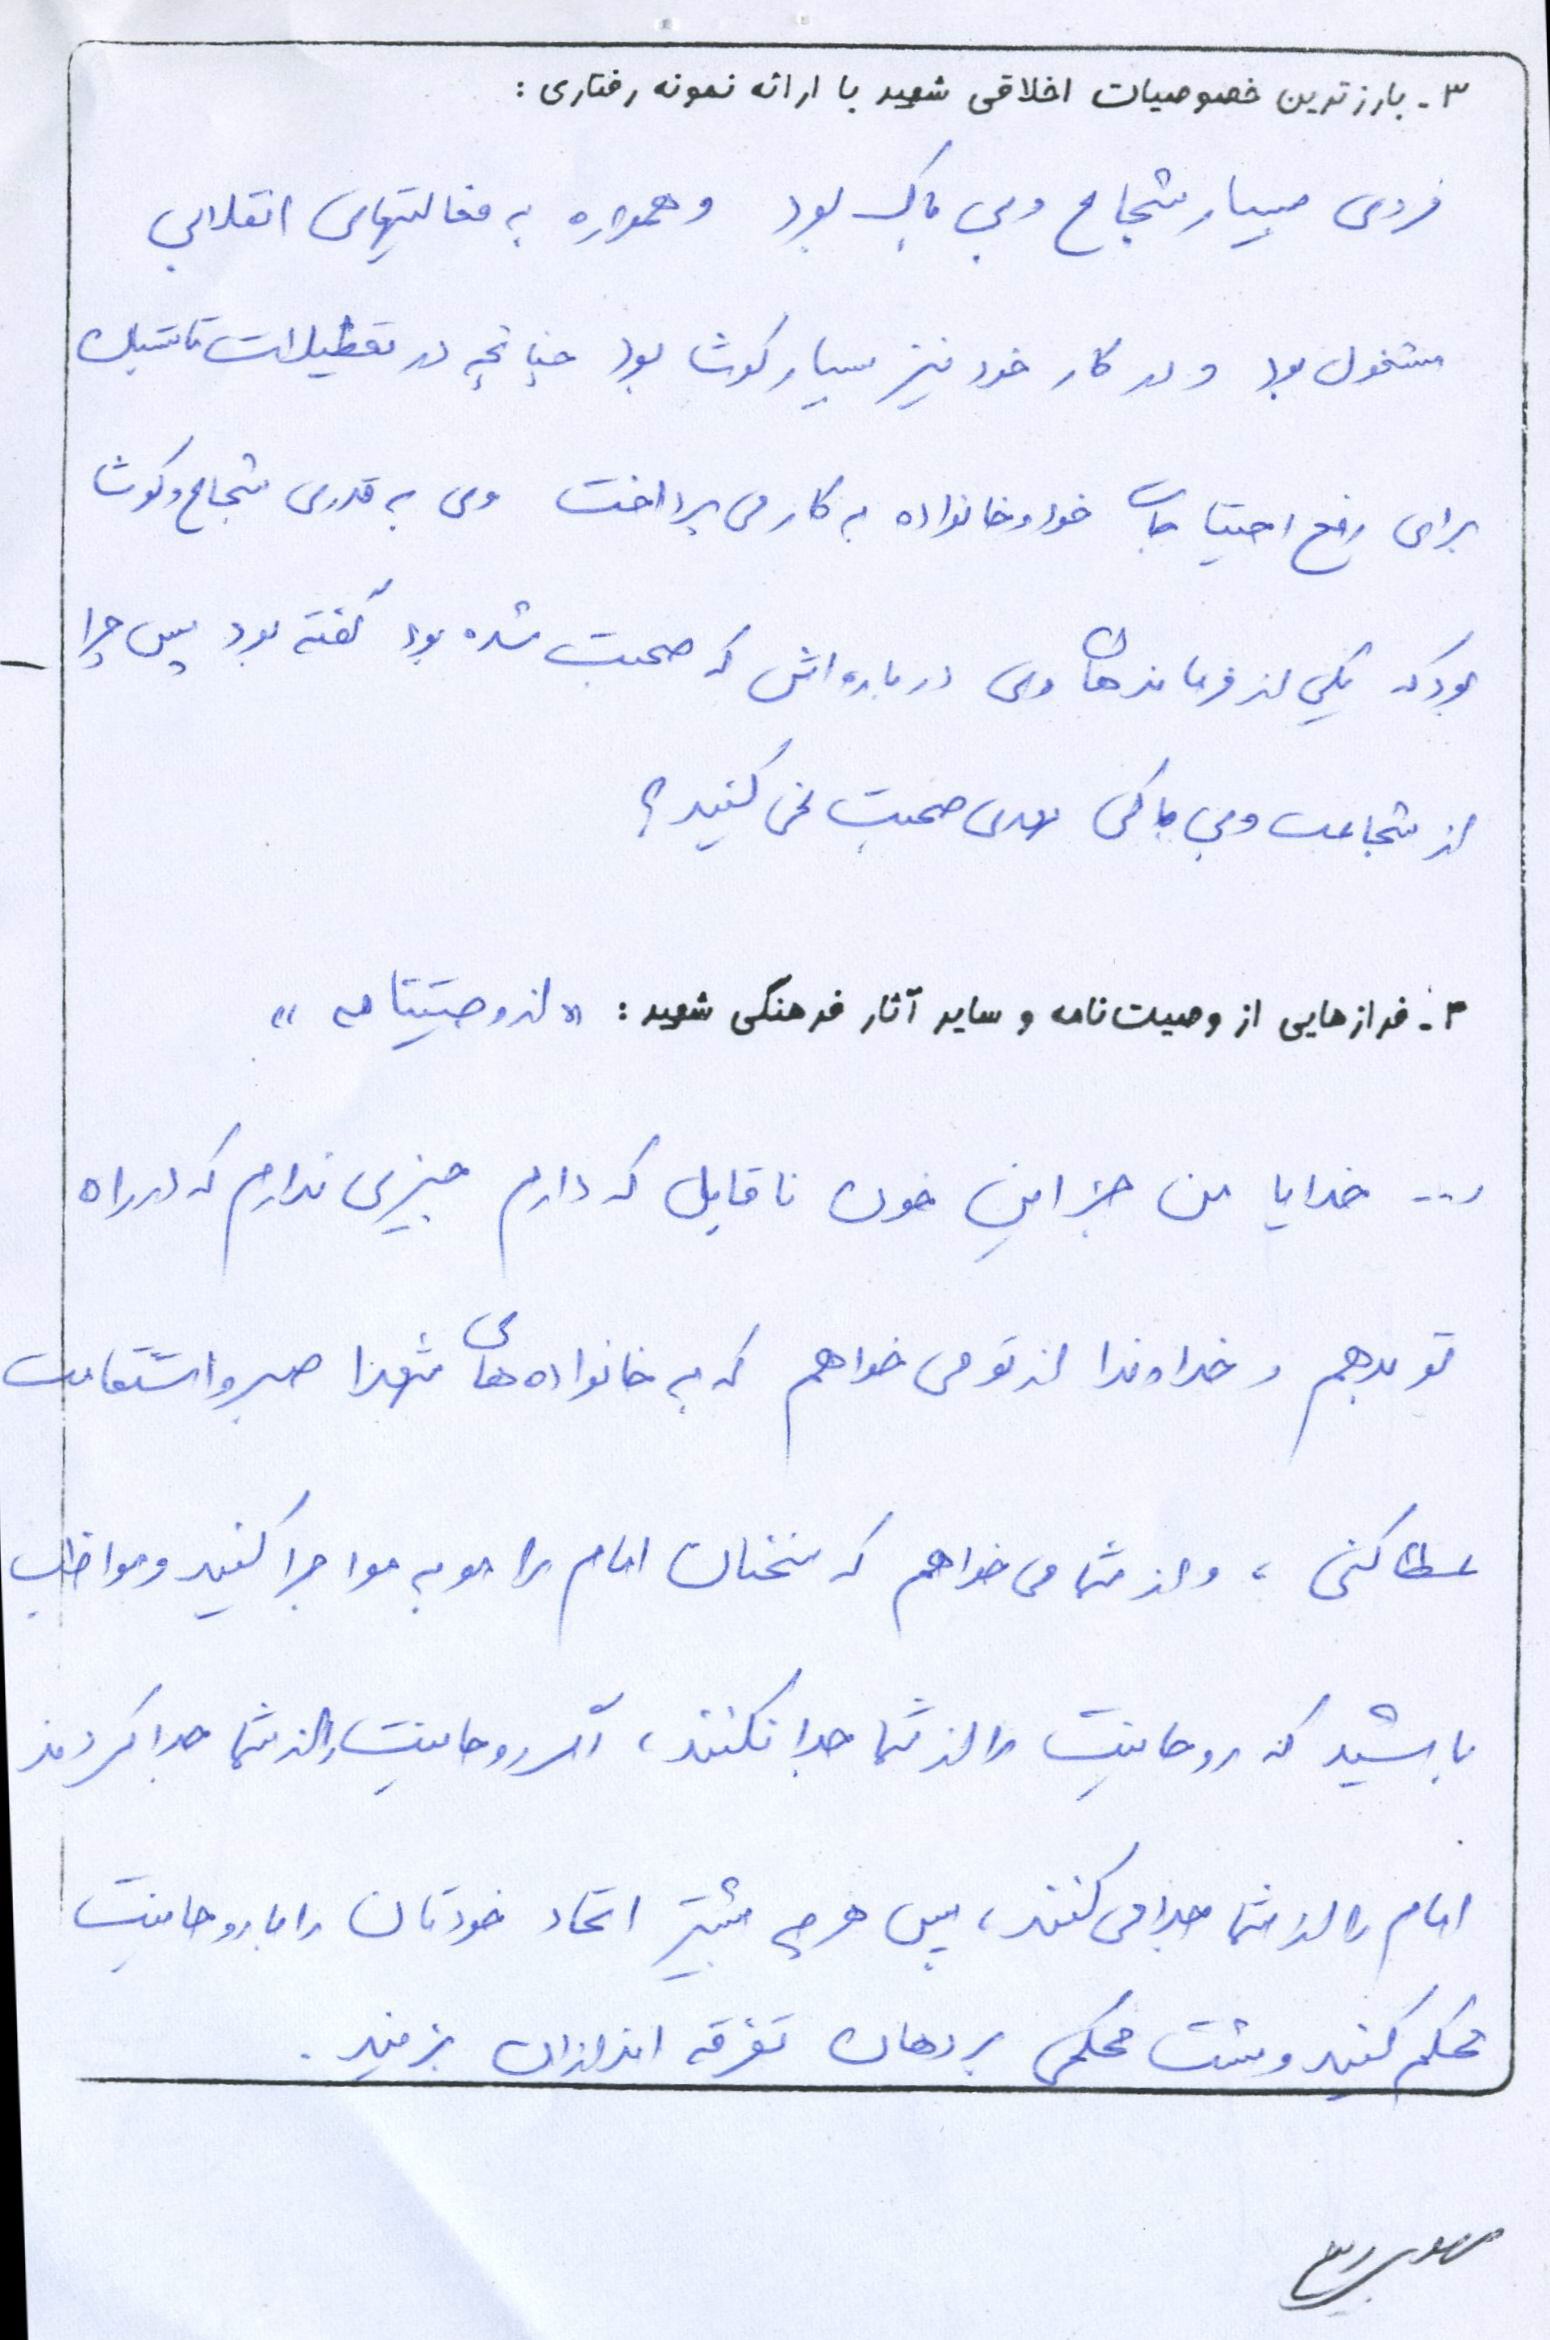 ۳ـ بارزترین خصوصیات اخلاقی شهید با ارائه نمونه رفتاری :
فردی بسیار شجاع و بی باک بود و همواره به فعالیتهای انقلابی
مشغول بود و در کار خود نیز بسیار کوشا بود چنانچه در تعطیلات تابستان
برای رفع احتیاجات خود و خانواده به کار می پرداخت وی به قدری شجاع و کوشا
بود که یکی از فرماندهان وی درباره اش که صحبت شده بود گفته بود پس چرا
از شجاعت و بی باکی مهدی صحبت نمی کنید ؟
۴ـ فرازهایی از وصیت‌نامه و سایر آثار فرهنگی شهید : «از وصیتنامه »
... خدایا من جز این خون ناقابل که دارم چیزی ندارم که در راه
تو بدهم و خداوندا از تو می خواهم که به خانواده های شهدا صبر و استقامت
عطا کنی ، و از شما می خواهم که سخنان امام را مو به مو اجرا کنید و مواظب
باشید که روحانیت را از شما جدا نکنند ، اگر روحانیت را از شما جدا کردند
امام را از شما جدا می کنند ، پس هر چه بیشتر اتحاد خودتان را با روحانیت
محکم کنید و مشت محکمی بر دهان تفرقه اندازان بزنید .